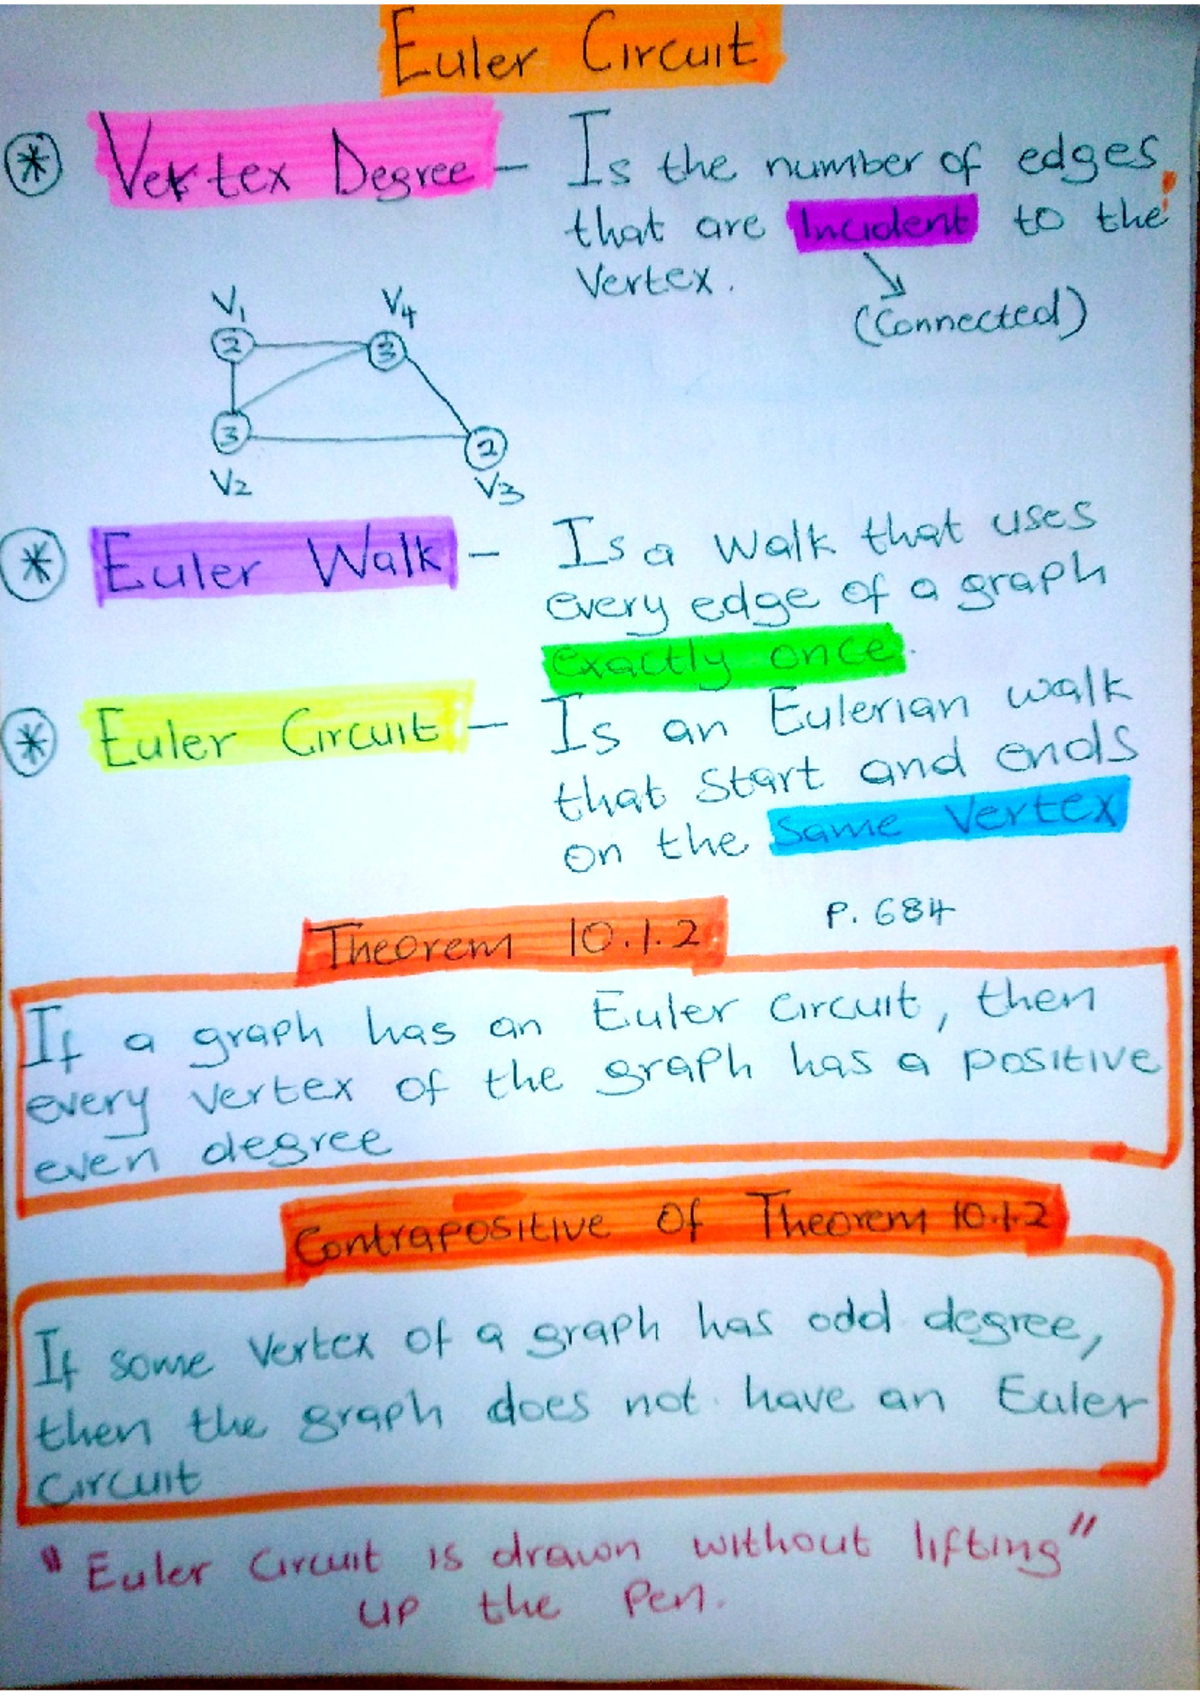 Euler Circuit
* Vertex Degree – Is the number of edges
that are Incident to the
Vertex.
(Connected)
V1 V4
2 3
3 2
V2 V3
* Euler Walk – Is a walk that uses
every edge of a graph
exactly once.
* Euler Circuit – Is an Eulerian walk
that start and ends
on the Same Vertex
P. 684
Theorem 10.1.2
If a graph has an Euler circuit, then
every vertex of the graph has a positive
even degree
Contrapositive Of Theorem 10.1.2
If some vertex of a graph has odd degree,
then the graph does not have an Euler
circuit
"Euler Circuit is drawn without lifting"
up the Pen.